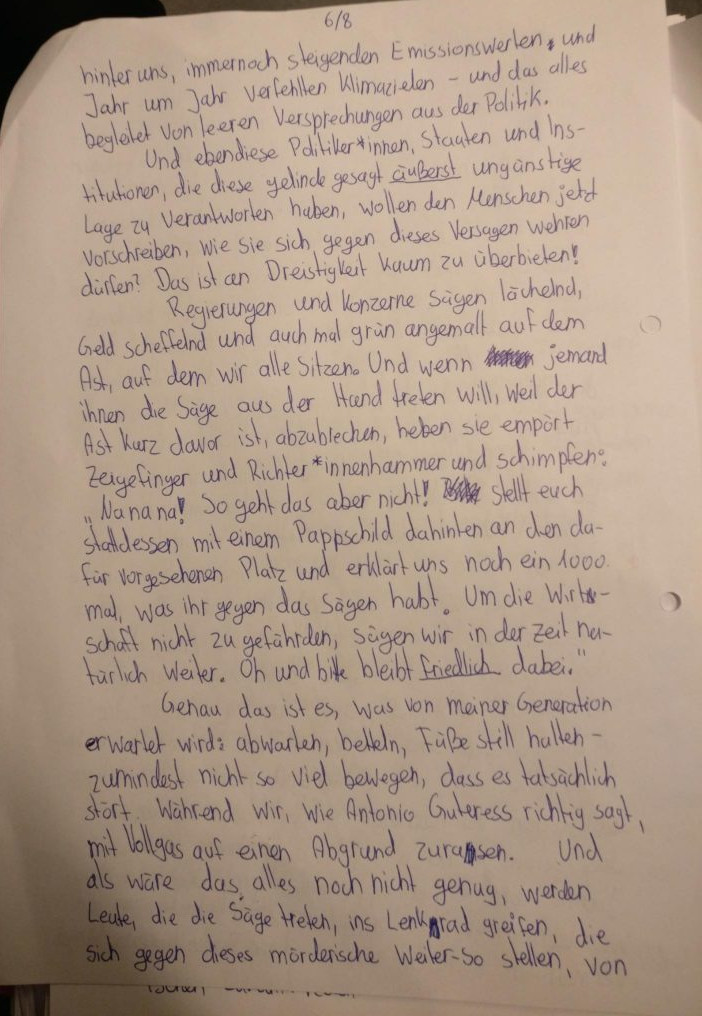 6/8
hinter uns, immernoch steigenden Emissionswerten, und
Jahr um Jahr verfehlten Klimazielen – und das alles
begleitet von leeren Versprechungen aus der Politik.
Und ebendiese Politiker*innen, Staaten und Ins-
titutionen, die diese gelinde gesagt äußerst ungünstige
Lage zu verantworten haben, wollen den Menschen jetzt
vorschreiben, wie sie sich gegen dieses Versagen wehren
dürfen? Das ist an Dreistigkeit kaum zu überbieten!
Regierungen und Konzerne sägen lächelnd,
Geld scheffelnd und auch mal grün angemalt auf dem
Ast, auf dem wir alle sitzen. Und wenn jemand
ihnen die Säge aus der Hand treten will, weil der
Ast kurz davor ist, abzubrechen, heben sie empört
Zeigefinger und Richter*innenhammer und schimpfen:
„Nanana! So geht das aber nicht! stellt euch
stattdessen mit einem Pappschild dahinten an den da-
für vorgesehenen Platz und erklärt uns noch ein 1000.
mal, was ihr gegen das Sägen habt. Um die Wirt-
schaft nicht zu gefährden, sägen wir in der Zeit na-
türlich weiter. Oh und bitte bleibt friedlich dabei."
Genau das ist es, was von meiner Generation
erwartet wird: abwarten, betteln, Füße still halten –
zumindest nicht so viel bewegen, dass es tatsächlich
stört. Während wir, wie Antonio Guteress richtig sagt,
mit Vollgas auf einen Abgrund zurasen. Und
als wäre das alles noch nicht genug, werden
Leute, die die Säge treten, ins Lenkrad greifen, die
sich gegen dieses mörderische Weiter-So stellen, von